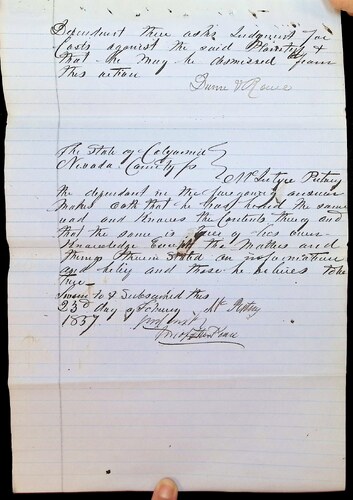 Defendant then asks Judgment for
Costs against the said Plaintiff &
that he may be dismissed from
this action
The State of
Nevada County
the defendant in the foregoing answer
makes oath that he has heard the same
read and knows the contents thereof and
that the same is true of his own
knowledge Except the Matters and
things therein stated on information
and belief and those he believes to be
true
Sworn to & Subscribed this
23d day of
1857